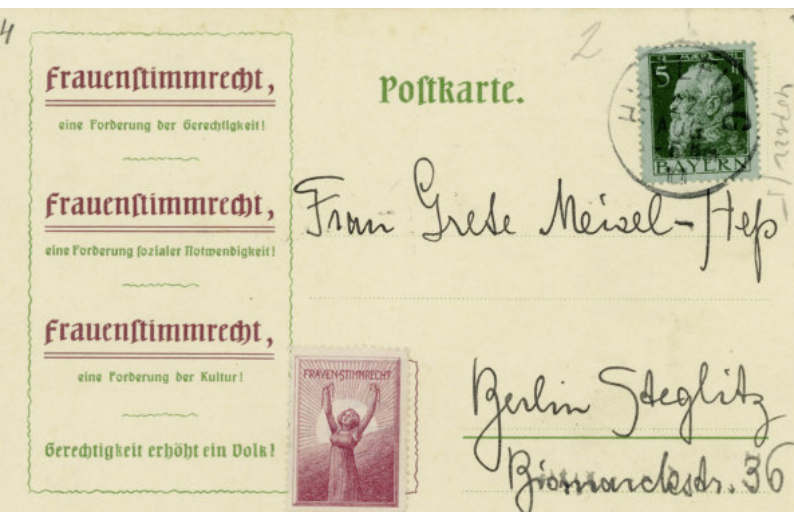 4
2
Frauenstimmrecht,
eine Forderung der Gerechtigkeit!
Frauenstimmrecht,
eine Forderung sozialer Notwendigkeit!
Frauenstimmrecht,
eine Forderung der Kultur!
Gerechtigkeit erhöht ein Volk!
Postkarte.
5
BAYERN
Frau Grete Meisel-Heß
FRAVEN-STIMMRECHT
Berlin Steglitz
Bismarckstr. 36